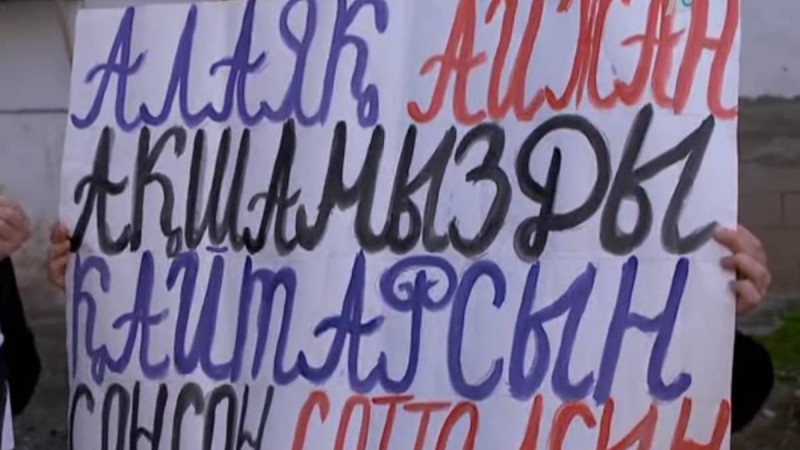 АЛАЯҚ АЙЖАН
АҚШАМЫЗДЫ
ҚАЙТАРСЫН
СОНСОН СОТТАЛСЫН